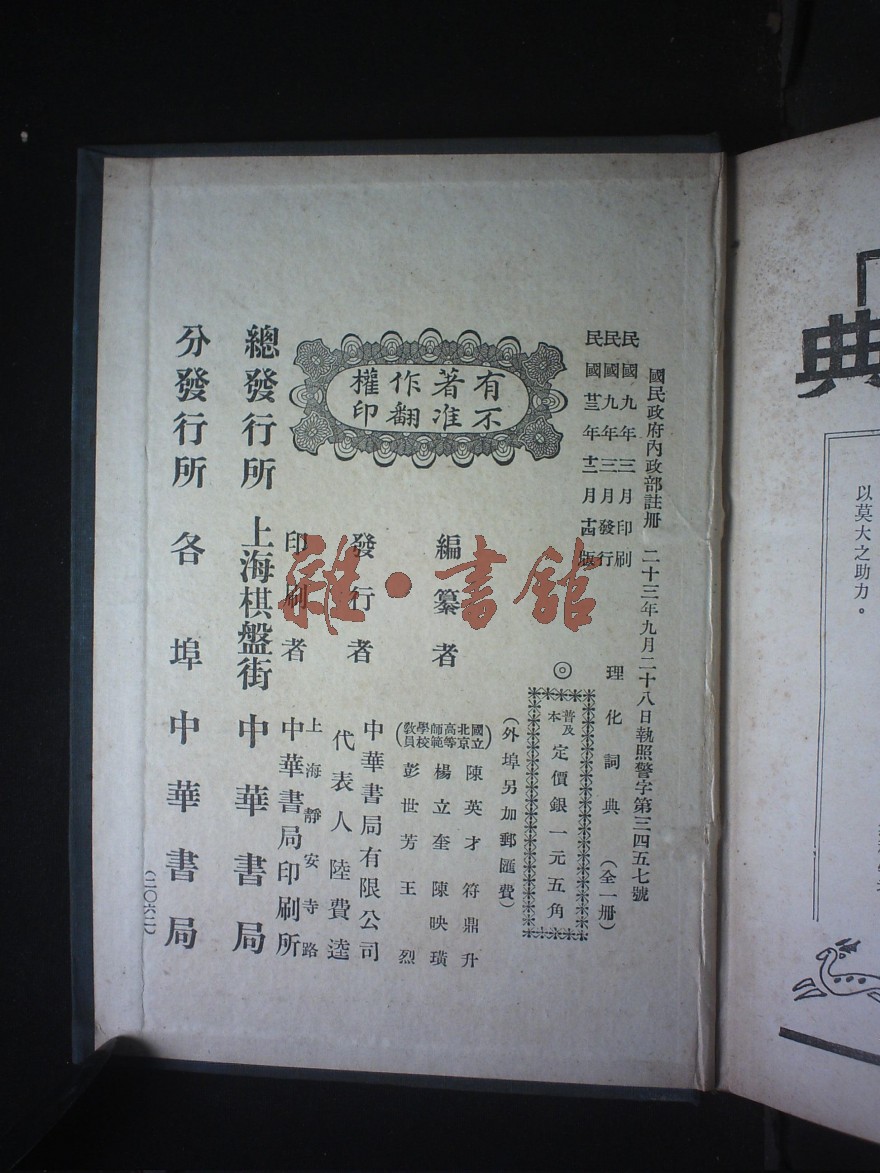 國民政府內政部註冊 二十三年九月二十八日執照警字第三四五七號
民國九年三月印刷
民國九年三月發行
民國廿三年十二月十四版
理化詞典 (全一冊)
◎
普及本 定價銀一元五角
(外埠另加郵匯費)
有著作權
不准翻印
編纂者
(國立北京高等師範學校教員)
陳英才 符鼎升
楊立奎 陳映璜
彭世芳 王烈
發行者
中華書局有限公司
代表人 陸費逵
印刷者
上海靜安寺路
中華書局印刷所
總發行所 上海棋盤街 中華書局
分發行所 各埠中華書局
(二〇六二)
雜·書館
典
以莫大之助力。